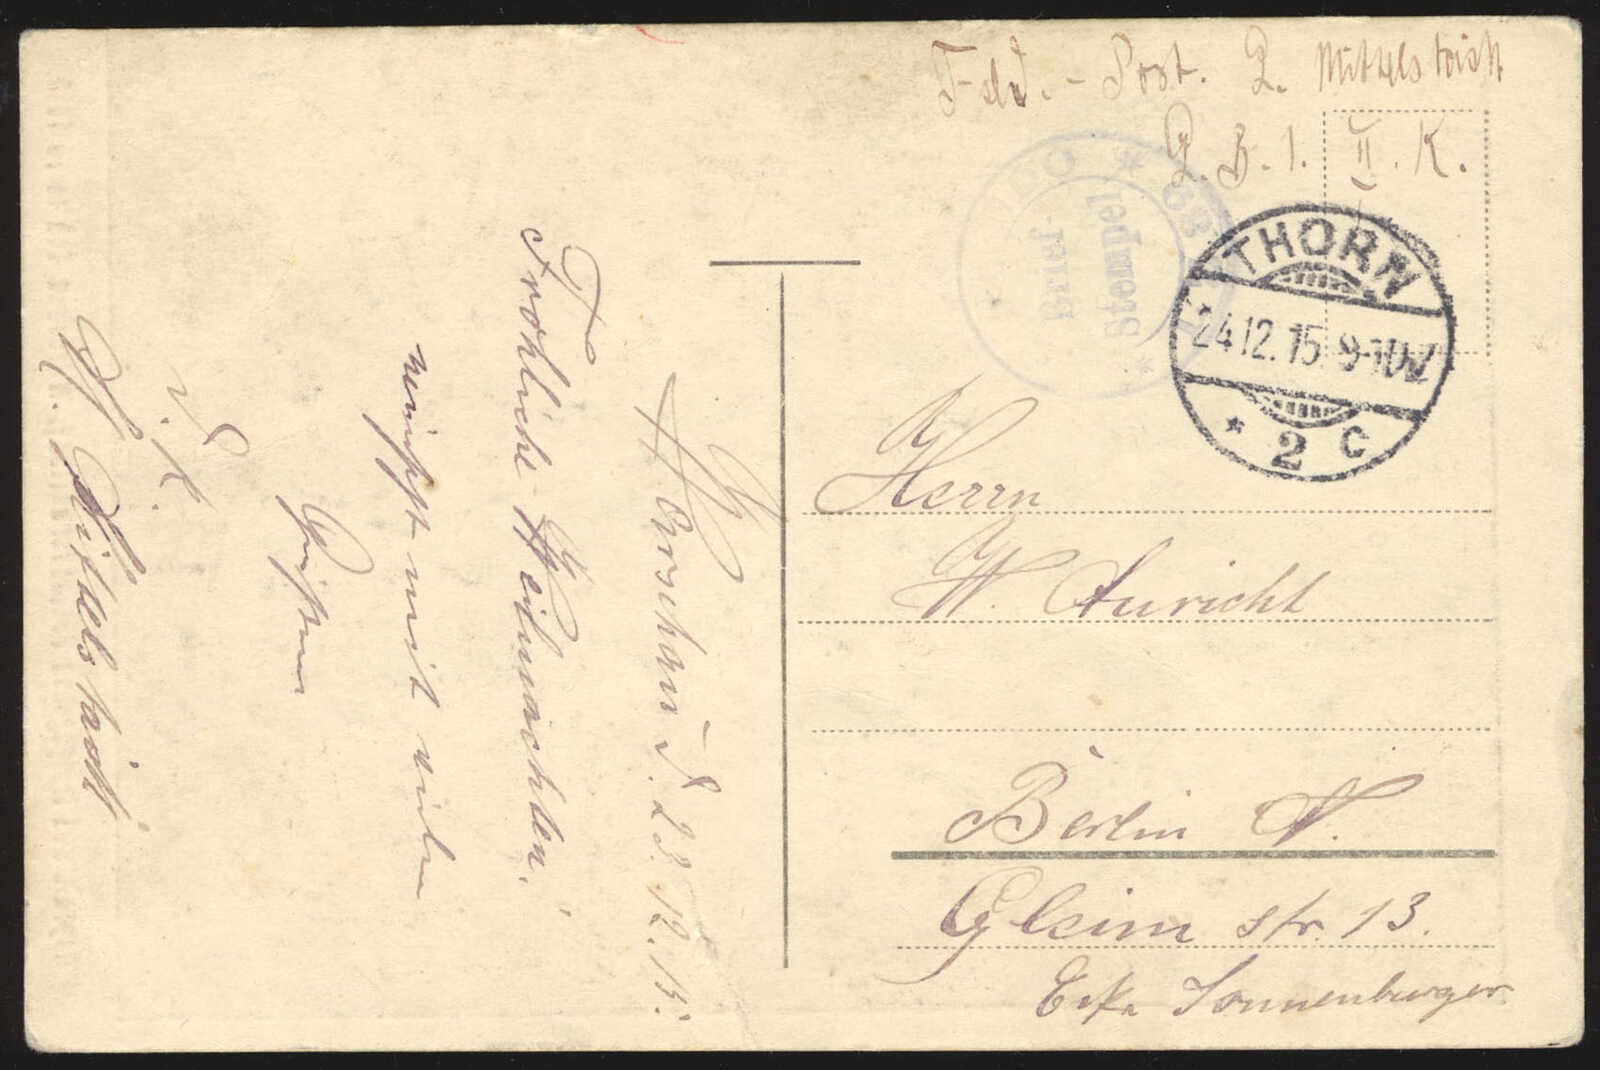 Feld.-Post. L. Mittelstädt
L. B. 1. II. K.
Brief-
Stempel
THORN
24.12.15. 9-10V.
* 2 c
Herrn
W. Auricht
Berlin N.
Gleim str. 13.
Ecke Sonnenburger
d. 23. 12. 15.
Fröhliche Weihnachten.
wünscht mit vielen
Grüßen
W. Mittelstädt